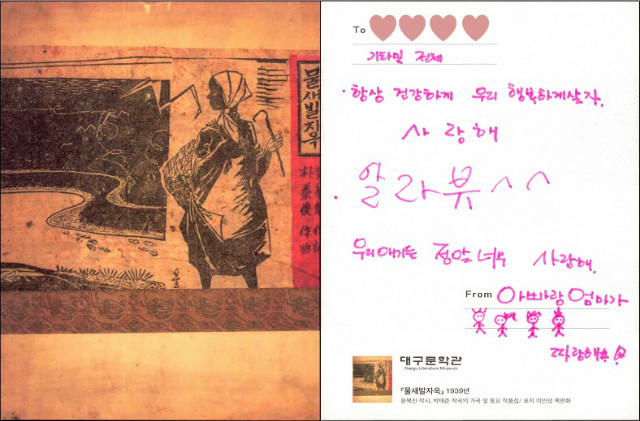 물새발자욱
朴泰俊 作曲
To
기타밀 전체
· 항상 건강하게 우리 행복하게살자.
사랑해
· 알라뷰^^
우리애기들 정말 너무 사랑해.
From 아빠랑 엄마가
따랑해유
대구문학관
Daegu Literature Museum
『물새발자옥』 1939년
윤복진 작시, 박태준 작곡의 가곡 및 동요 작품집/ 표지 이인성 목판화